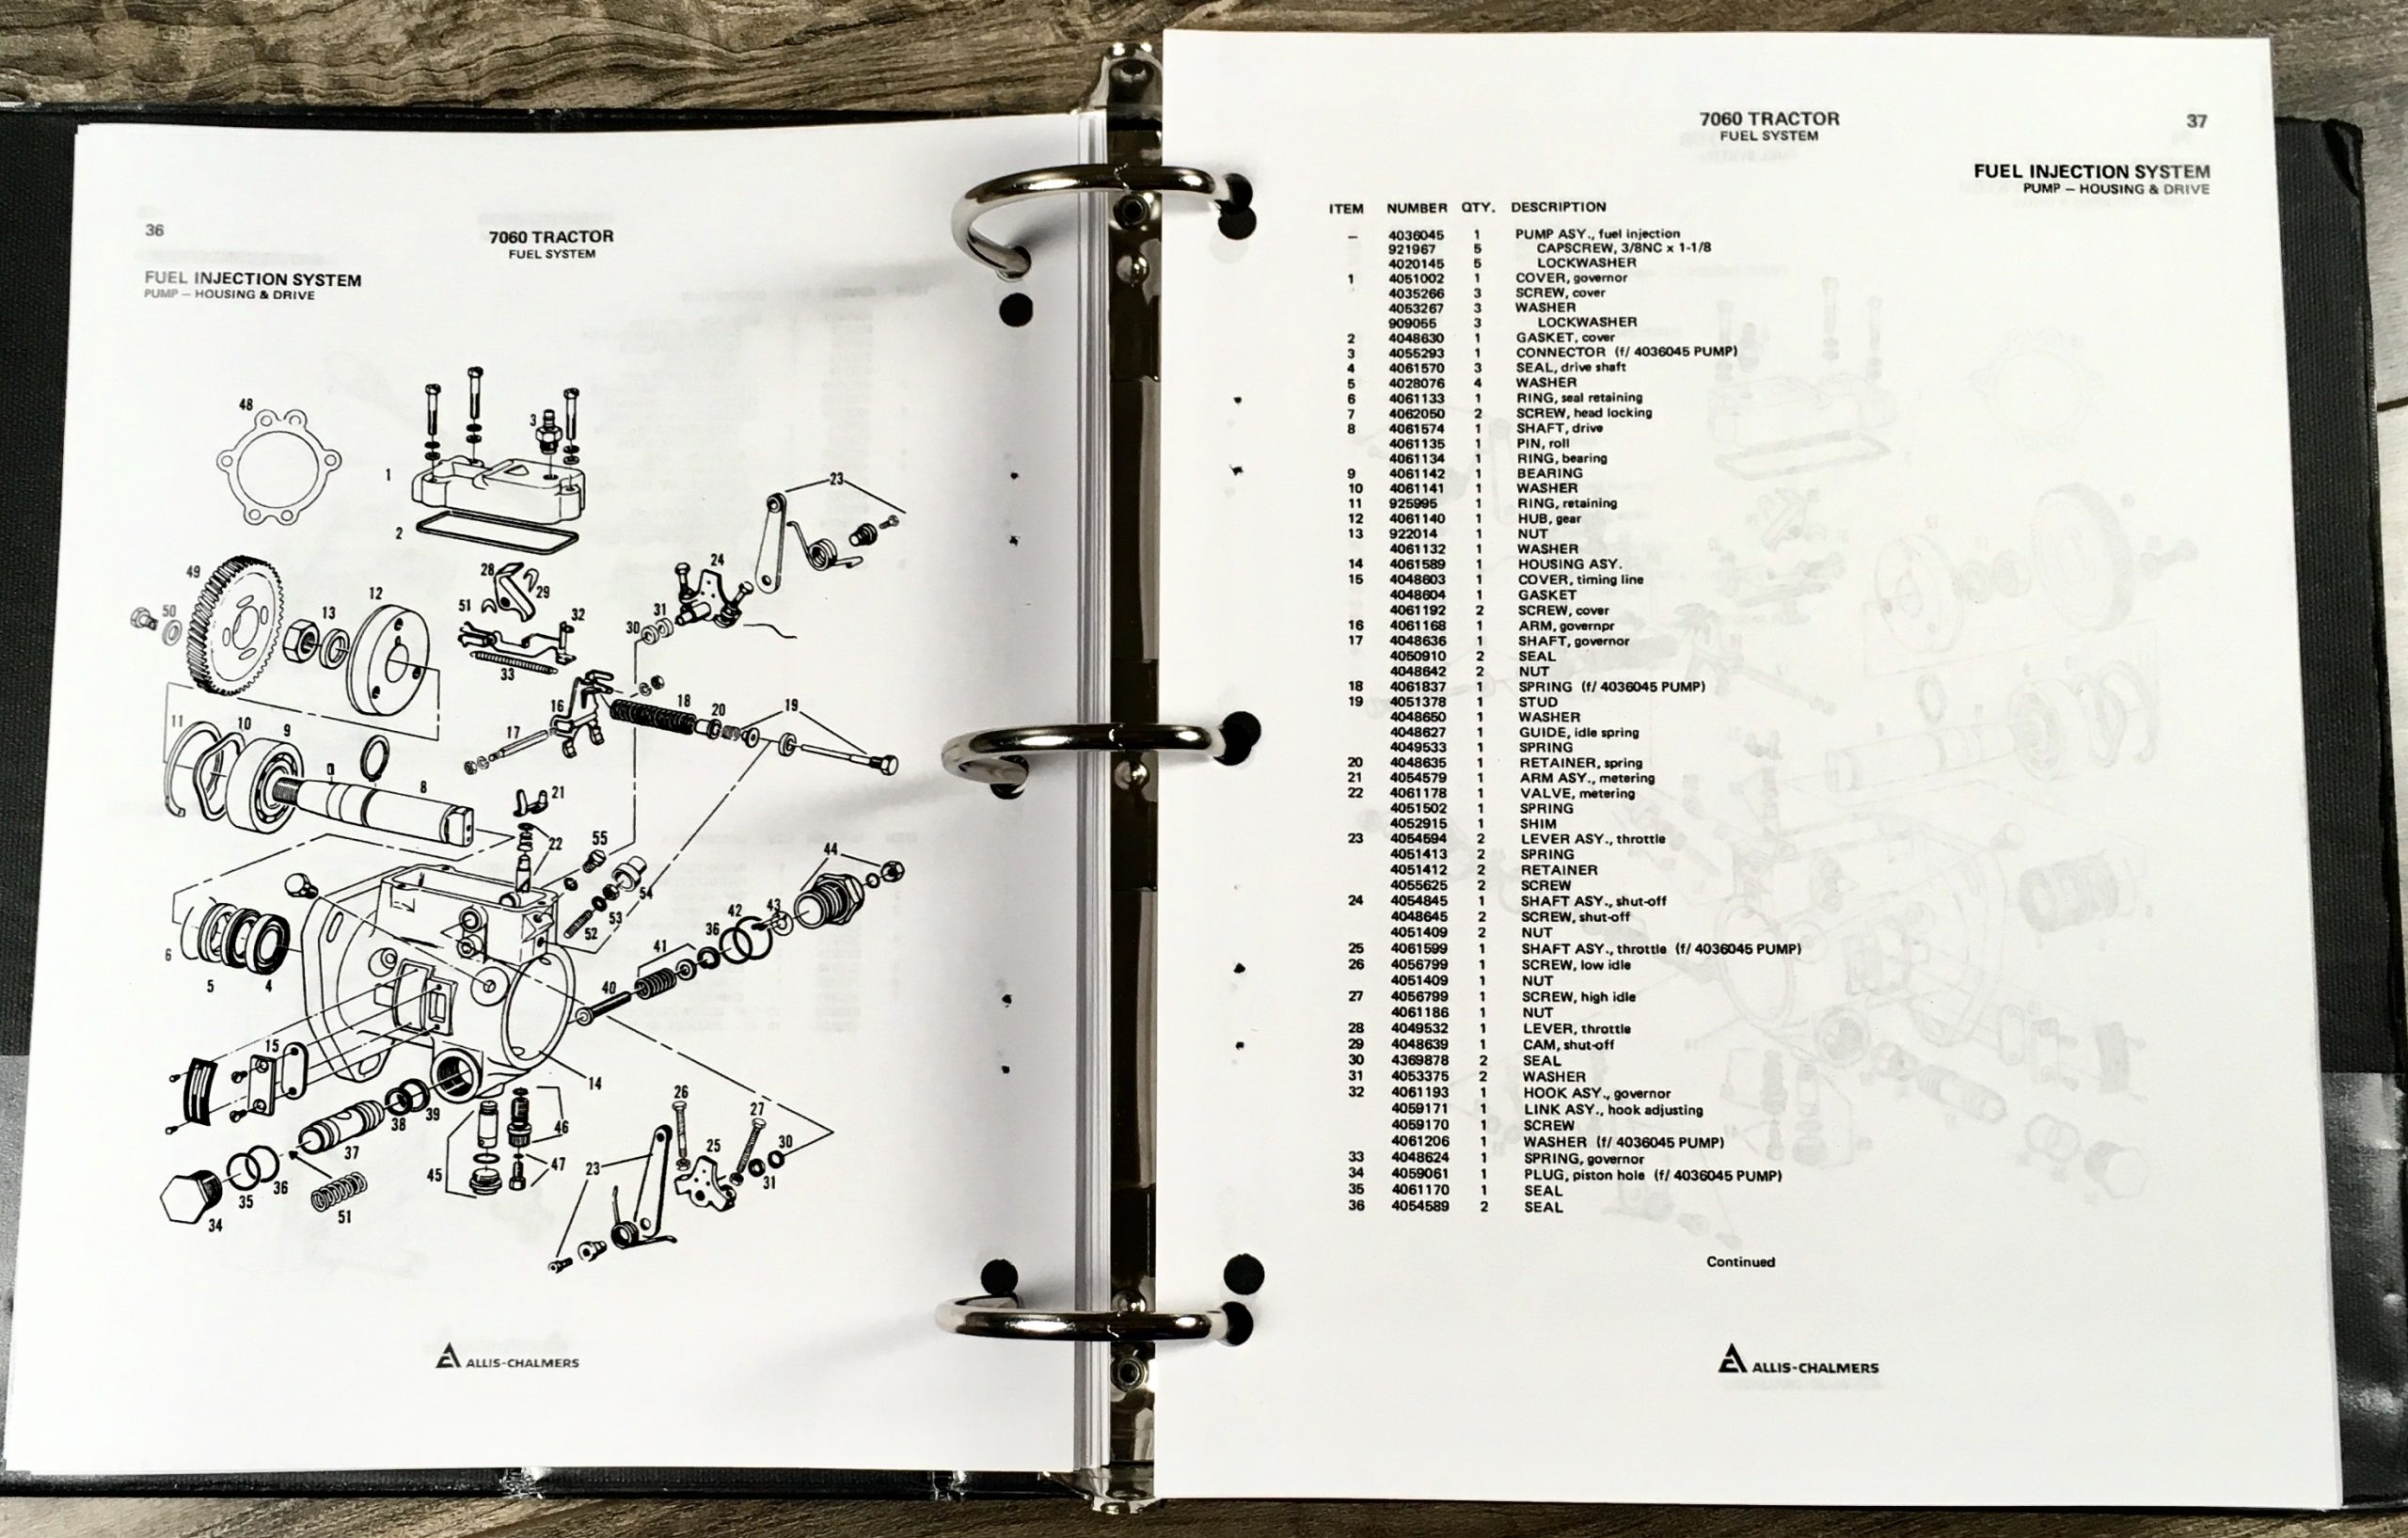 36
7060 TRACTOR
FUEL SYSTEM
FUEL INJECTION SYSTEM
PUMP — HOUSING & DRIVE
48
3
1
2
23
24
49
28
29
51
32
12
50
13
31
30
33
16
18
20
19
17
11
10
9
8
21
22
55
44
54
53
52
43
42
36
41
6
5
4
40
15
14
39
38
37
46
45
47
26
27
25
30
31
23
35
36
34
51
ALLIS-CHALMERS
7060 TRACTOR
FUEL SYSTEM
37
FUEL INJECTION SYSTEM
PUMP — HOUSING & DRIVE
ITEM NUMBER QTY. DESCRIPTION
— 4036045 1 PUMP ASY., fuel injection
921967 5 CAPSCREW, 3/8NC x 1-1/8
4020145 5 LOCKWASHER
1 4051002 1 COVER, governor
4035266 3 SCREW, cover
4053267 3 WASHER
909055 3 LOCKWASHER
2 4048630 1 GASKET, cover
3 4055293 1 CONNECTOR (f/ 4036045 PUMP)
4 4061570 3 SEAL, drive shaft
5 4028076 4 WASHER
6 4061133 1 RING, seal retaining
7 4062050 2 SCREW, head locking
8 4061574 1 SHAFT, drive
4061135 1 PIN, roll
4061134 1 RING, bearing
9 4061142 1 BEARING
10 4061141 1 WASHER
11 925995 1 RING, retaining
12 4061140 1 HUB, gear
13 922014 1 NUT
4061132 1 WASHER
14 4061589 1 HOUSING ASY.
15 4048603 1 COVER, timing line
4048604 1 GASKET
4061192 2 SCREW, cover
16 4061168 1 ARM, governpr
17 4048636 1 SHAFT, governor
4050910 2 SEAL
4048642 2 NUT
18 4061837 1 SPRING (f/ 4036045 PUMP)
19 4051378 1 STUD
4048650 1 WASHER
4048627 1 GUIDE, idle spring
4049533 1 SPRING
20 4048635 1 RETAINER, spring
21 4054579 1 ARM ASY., metering
22 4061178 1 VALVE, metering
4051502 1 SPRING
4052915 1 SHIM
23 4054594 2 LEVER ASY., throttle
4051413 2 SPRING
4051412 2 RETAINER
4055625 2 SCREW
24 4054845 1 SHAFT ASY., shut-off
4048645 2 SCREW, shut-off
4051409 2 NUT
25 4061599 1 SHAFT ASY., throttle (f/ 4036045 PUMP)
26 4056799 1 SCREW, low idle
4051409 1 NUT
27 4056799 1 SCREW, high idle
4061186 1 NUT
28 4049532 1 LEVER, throttle
29 4048639 1 CAM, shut-off
30 4369878 2 SEAL
31 4053375 2 WASHER
32 4061193 1 HOOK ASY., governor
4059171 1 LINK ASY., hook adjusting
4059170 1 SCREW
4061206 1 WASHER (f/ 4036045 PUMP)
33 4048624 1 SPRING, governor
34 4059061 1 PLUG, piston hole (f/ 4036045 PUMP)
35 4061170 1 SEAL
36 4054589 2 SEAL
Continued
ALLIS-CHALMERS